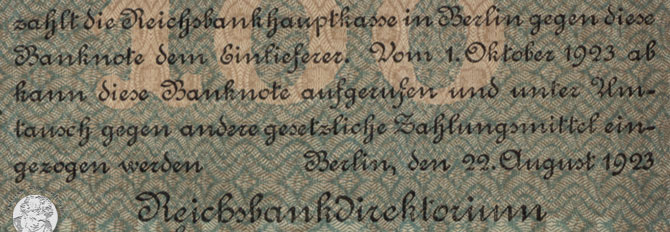 zahlt die Reichsbankhauptkasse in Berlin gegen diese
Banknote dem Einlieferer. Vom 1. Oktober 1923 ab
kann diese Banknote aufgerufen und unter Um-
tausch gegen andere gesetzliche Zahlungsmittel ein-
gezogen werden Berlin, den 22. August 1923
Reichsbankdirektorium
100